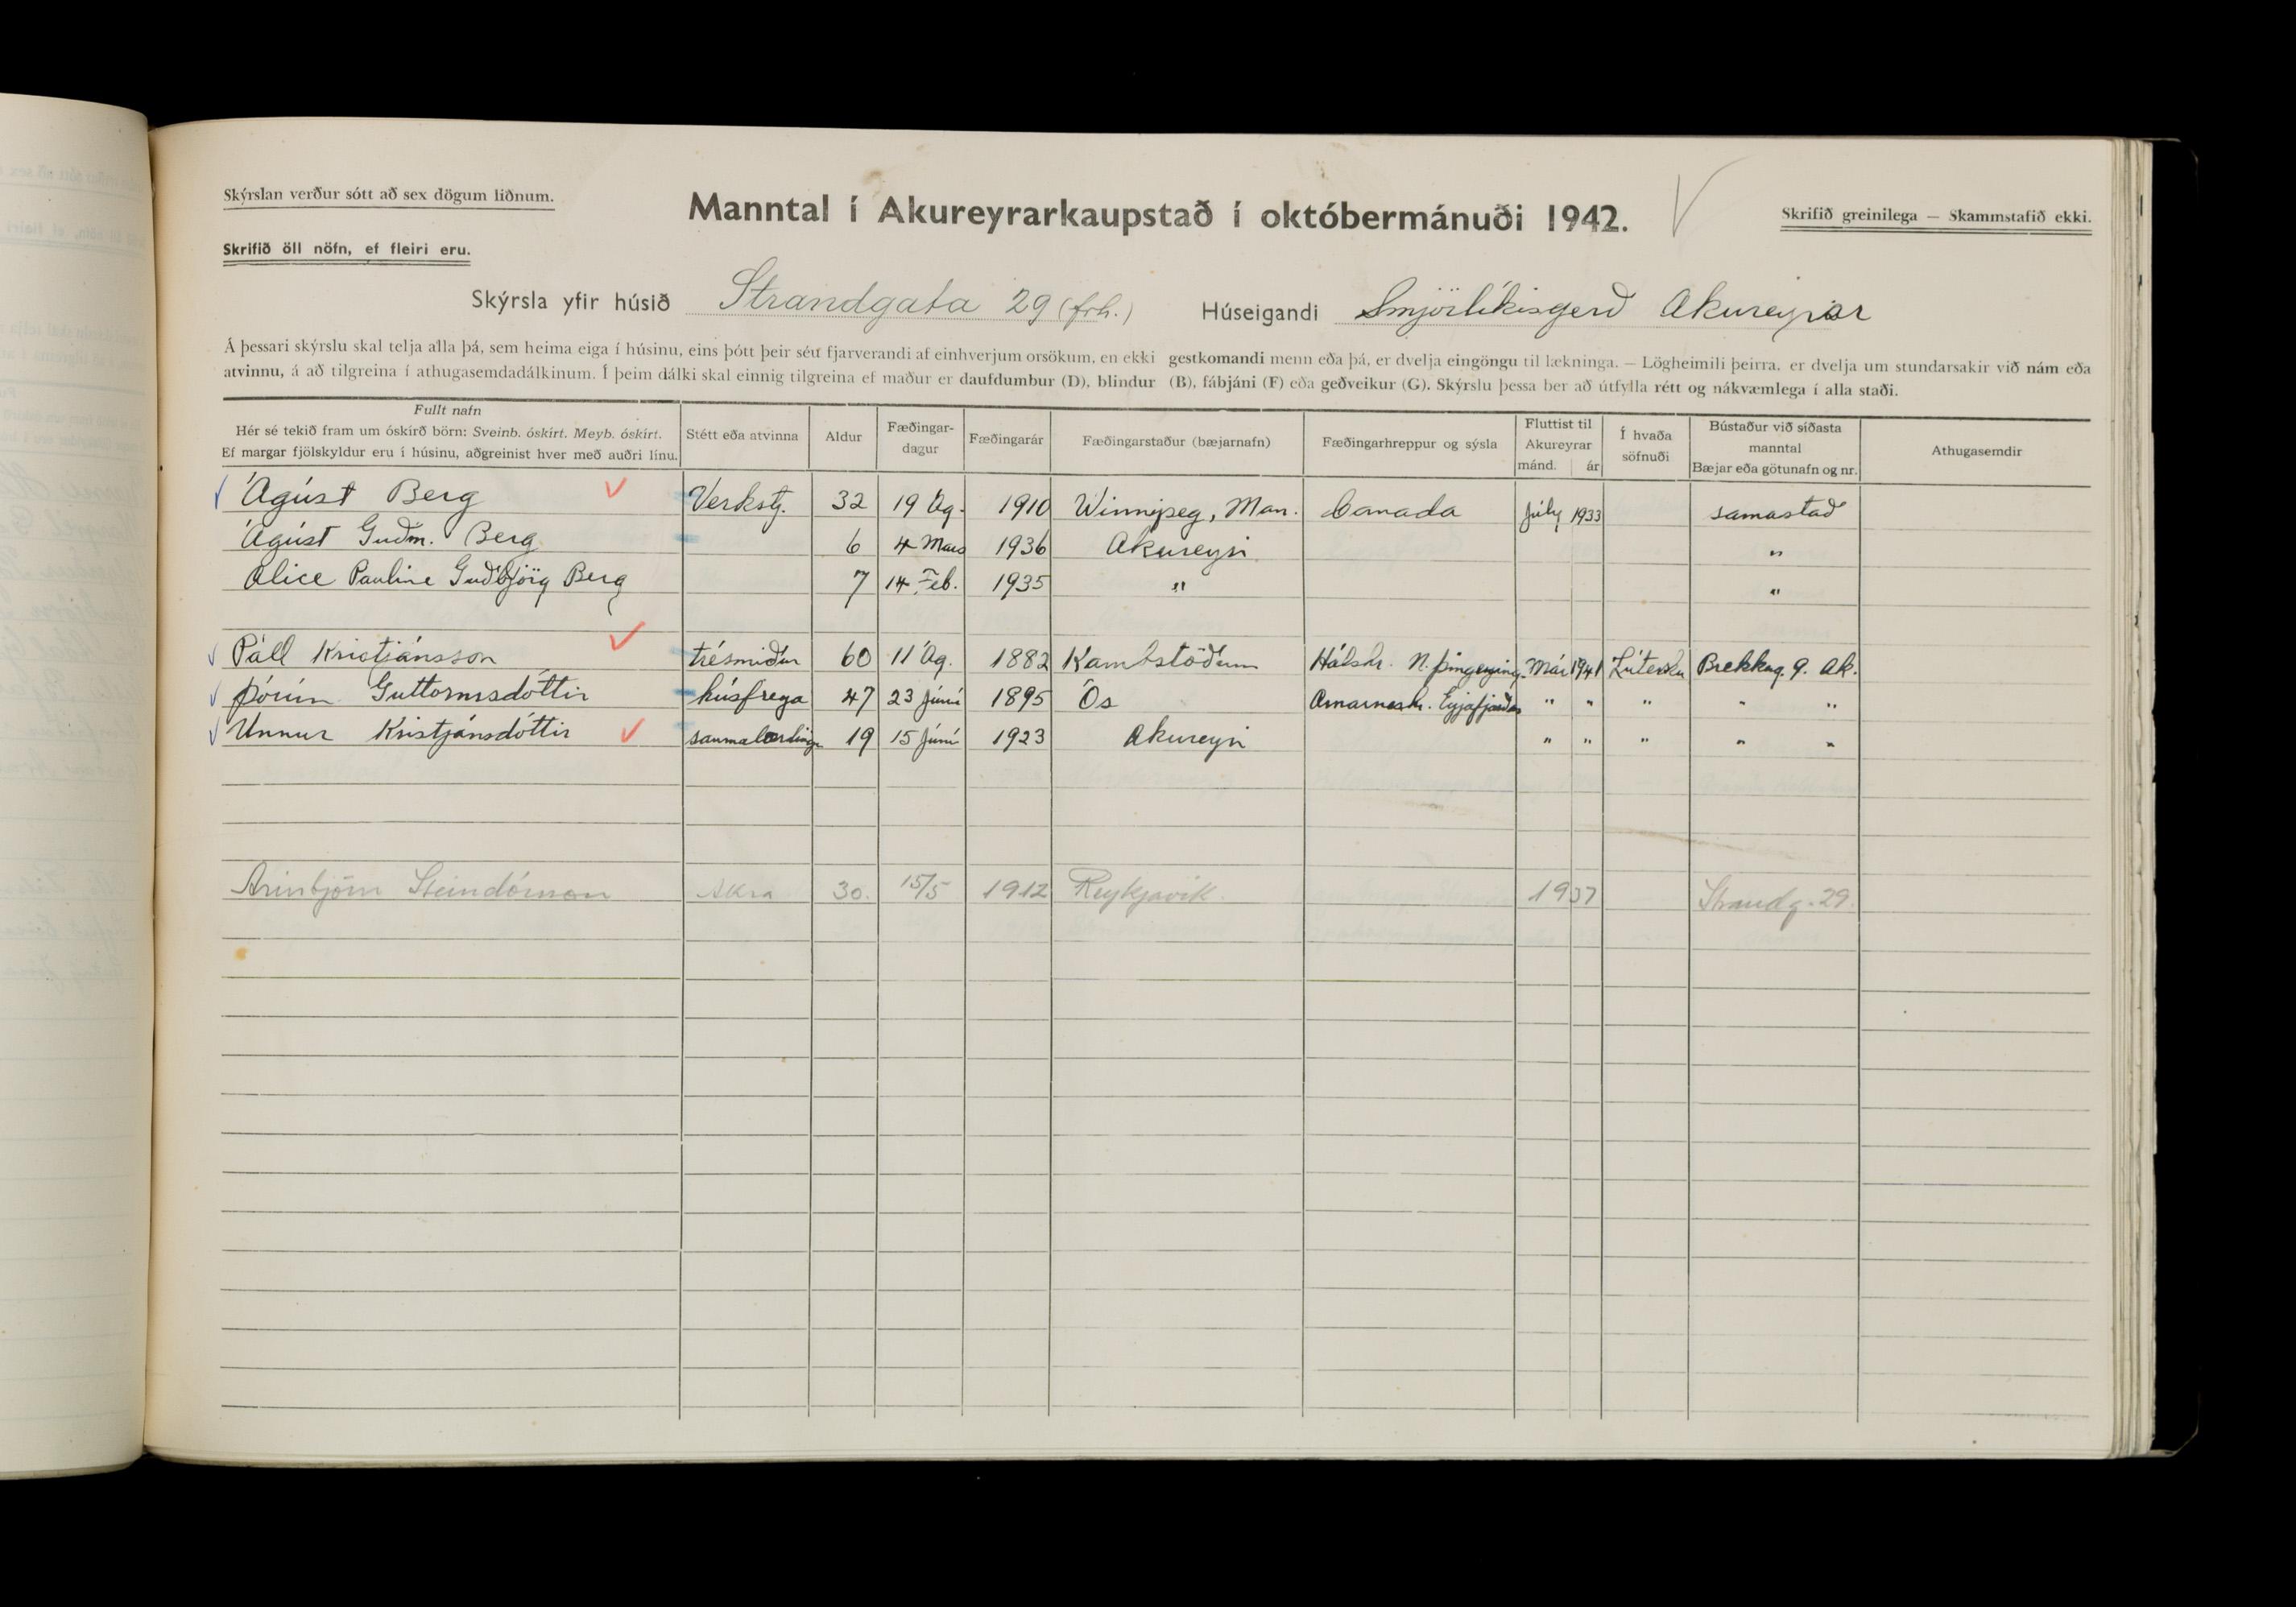 Skýrslan verður sótt að sex dögum liðnum.
Manntal í Akureyrarkaupstað í októbermánuði 1942.
Skrifið greinilega — Skammstafið ekki.
Skrifið öll nöfn, ef fleiri eru.
Skýrsla yfir húsið Strandgata 29 (frh.) Húseigandi Smjörlíkisgerð Akureyrar
Á þessari skýrslu skal telja alla þá, sem heima eiga í húsinu, eins þótt þeir séu fjarverandi af einhverjum orsökum, en ekki gestkomandi menn eða þá, er dvelja eingöngu til lækninga. — Lögheimili þeirra, er dvelja um stundarsakir við nám eða
atvinnu, á að tilgreina í athugasemdadálkinum. Í þeim dálki skal einnig tilgreina ef maður er daufdumbur (D), blindur (B), fábjáni (F) eða geðveikur (G). Skýrslu þessa ber að útfylla rétt og nákvæmlega í alla staði.
Fullt nafn
Hér sé tekið fram um óskírð börn: Sveinb. óskírt. Meyb. óskírt.
Ef margar fjölskyldur eru í húsinu, aðgreinist hver með auðri línu.
Stétt eða atvinna
Aldur
Fæðingar-
dagur
Fæðingarár
Fæðingarstaður (bæjarnafn)
Fæðingarhreppur og sýsla
Fluttist til
Akureyrar
mánd. ár
Í hvaða
söfnuði
Bústaður við síðasta
manntal
Bæjar eða götunafn og nr.
Athugasemdir
Ágúst Berg Verkstj. 32 19 Ág. 1910 Winnipeg, Man. Canada júlý 1933 samastað
Ágúst Guðm. Berg 6 4 Mars 1936 Akureyri "
Alice Pauline Guðbjörg Berg 7 14. Feb. 1935 " "
Páll Kristjánsson trésmiður 60 11 Ág. 1882 Kambstöðum Hálshr. N. þingeying. Már 1941 Lútersku Brekkug. 9. Ak.
Þórún Guttormsdóttir húsfreya 47 23 júní 1895 Ós Arnarneshr. Eyjafjarðar " " " " "
Unnur Kristjánsdóttir saumalærlingr 19 15 júní 1923 Akureyri " " " " "
Arinbjörn Steindórsson Akra 30. 15/5 1912 Reykjavík. 1937 Strandg. 29.